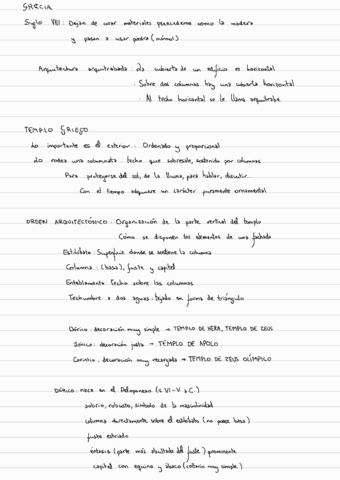 GRECIA
Siglo VIII: Dejan de usar materiales perecederos como la madera
y pasan a usar piedra (mármol)
Arquitectura arquitrabada: la cubierta de un edificio es horizontal
: Sobre dos columnas hay una cubierta horizontal
: Al techo horizontal se le llama arquitrabe
TEMPLO GRIEGO
Lo importante es el exterior: Ordenado y proporcional
Lo rodea una columnata: techo que sobresale, sostenido por columnas
Para protegerse del sol, de la lluvia, para hablar, discutir..
Con el tiempo adquiere un carácter puramente ornamental
ORDEN ARQUITECTÓNICO: Organización de la parte vertical del templo
Cómo se disponen los elementos de una fachada
Estilóbato: Superficie donde se sostiene la columna
Columna: (basa), fuste y capitel
Entablamento: Techo sobre las columnas
Techumbre a dos aguas: tejado en forma de triángulo
Dórico: decoración muy simple → TEMPLO DE HERA, TEMPLO DE ZEUS
Jónico: decoración justa → TEMPLO DE APOLO
Corintio: decoración muy recargada → TEMPLO DE ZEUS OLÍMPICO
Dórico: nace en el Peloponeso (s.VI-V a.C.)
sobrio, robusto, símbolo de la masculinidad
columna directamente sobre el estilóbato (no posee basa)
fuste estriado
éntasis (parte más abultada del fuste) prominente
capitel con equino y ábaco (collarín muy simple)